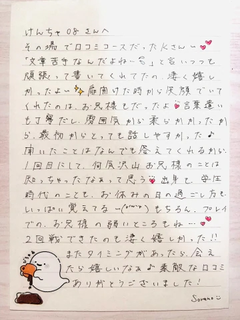 けんちゃ08さんへ
その場で口コミコースだったKさんー
「文章苦手なんだよねー💦」と言いつつも
頑張って書いてくれてたの、凄く嬉し
かったよー 扉開けた時から笑顔でいて
くれたのは、お兄様もだったよ 言葉遣い
も丁寧だし、雰囲気から柔らかかったか
ら、最初からとっても話しやすかった♪
聞いたことはなんでも答えてくれるから、
1回目にして、何気沢山お兄様のことは
知っちゃったなぁって思う 出身も、学生
時代のことも、お休みの日の過ごし方も
いっぱい覚えてるー もちろん、プレイ
での、お兄様の弱いところもねー
2回戦できたのも凄く嬉しかった!!
またタイミングがあったら、会え
たら嬉しいなぁ♪素敵な口コミ
ありがとうございました!